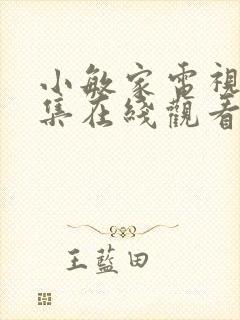 小敏家電視
集在綫觀看
王藍田